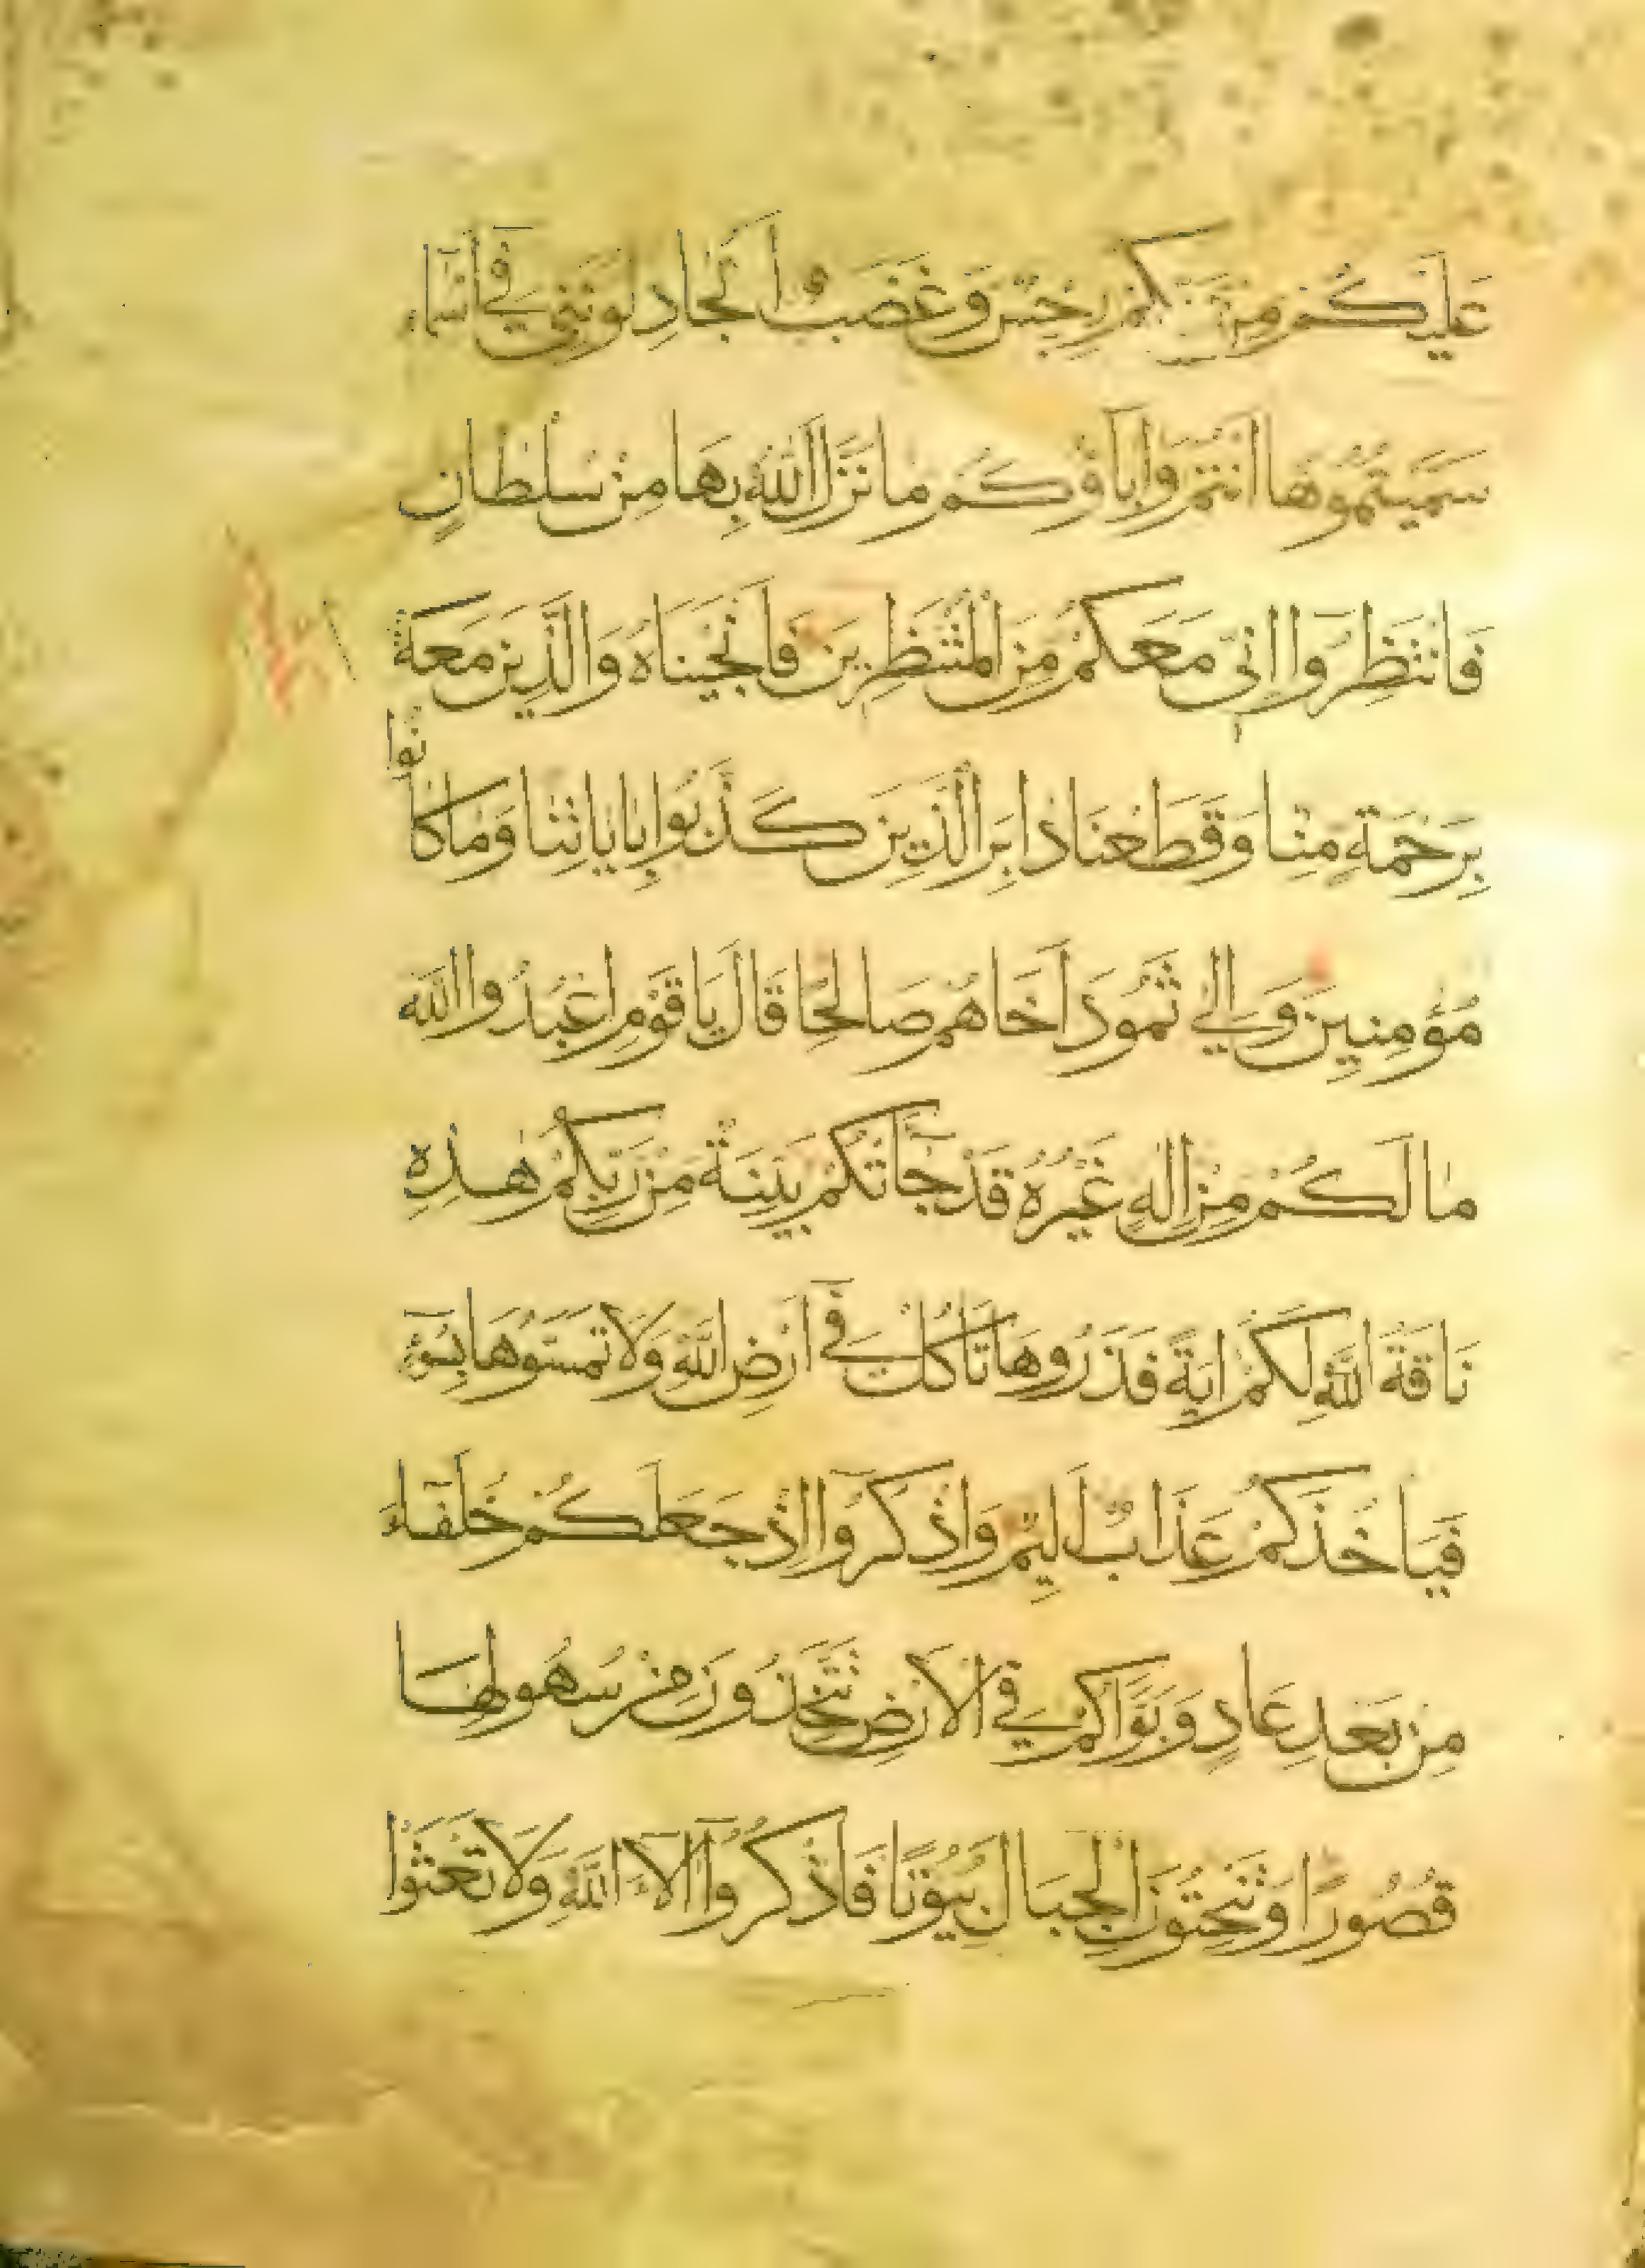 عَلَيْكُمْ مِنْ رَبِّكُمْ رِجْسٌ وَغَضَبٌ اَتُجَادِلُونَنِي فِي اَسْمَاءٍ
سَمَّيْتُمُوهَا اَنْتُمْ وَابَاؤُكُمْ مَا نَزَّلَ اللّٰهُ بِهَا مِنْ سُلْطَانٍ
فَانْتَظِرُوا اِنِّي مَعَكُمْ مِنَ الْمُنْتَظِرِينَ فَاَنْجَيْنَاهُ وَالَّذِينَ مَعَهُ
بِرَحْمَةٍ مِنَّا وَقَطَعْنَا دَابِرَ الَّذِينَ كَذَّبُوا بِاٰيَاتِنَا وَمَا كَانُوا
مُؤْمِنِينَ وَاِلٰي ثَمُودَ اَخَاهُمْ صَالِحًا قَالَ يَا قَوْمِ اعْبُدُوا اللّٰهَ
مَا لَكُمْ مِنْ اِلٰهٍ غَيْرُهُ قَدْ جَاتْكُمْ بَيِّنَةٌ مِنْ رَبِّكُمْ هٰذِهِ
نَاقَةُ اللّٰهِ لَكُمْ ايَةً فَذَرُوهَا تَاْكُلْ فِي اَرْضِ اللّٰهِ وَلَا تَمَسُّوهَا بِسُوءٍ
فَيَاْخُذَكُمْ عَذَابٌ اَلِيمٌ وَاذْكُرُوا اِذْ جَعَلَكُمْ خُلَفَاءَ
مِنْ بَعْدِ عَادٍ وَبَوَّاَكُمْ فِي الْاَرْضِ تَتَّخِذُونَ مِنْ سُهُولِهَا
قُصُورًا وَتَنْحِتُونَ الْجِبَالَ بُيُوتًا فَاذْكُرُوا اٰلَاءَ اللّٰهِ وَلَا تَعْثَوْا